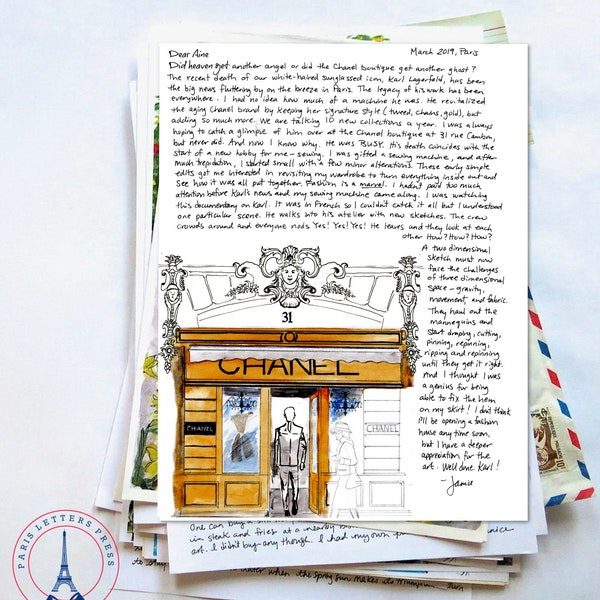 Dear Aine March 2019, Paris
Did heaven get another angel or did the Chanel boutique get another ghost?
The recent death of our white-haired sunglassed icon, Karl Lagerfeld, has been
the big news fluttering by on the breeze in Paris. The legacy of his work has been
everywhere. I had no idea how much of a machine he was. He revitalized
the aging Chanel brand by keeping her signature style (tweed, chains, gold), but
adding so much more. We are talking 10 new collections a year. I was always
hoping to catch a glimpse of him over at the Chanel boutique at 31 rue Cambon,
but never did. And now I know why. He was BUSY. It's death coincides with the
start of a new hobby for me - sewing. I was gifted a sewing machine, and after
much trepidation, I started small with a few minor alterations. These early simple
edits got me interested in revisiting my wardrobe to turn everything inside out and
see how it was all put together. Fashion is a marvel. I hadn't paid too much
attention before Karl's news and my sewing machine came along. I was watching
this documentary on Karl. It was in French so I couldn't catch it all but I understood
one particular scene. He walks into his atelier with new sketches. The crew
crowds around and everyone nods Yes! Yes! Yes! He leaves and they look at each
other How? How? How?
A two dimensional
sketch must now
face the challenges
of three dimensional
space - gravity,
movement, and fabric.
They haul out the
mannequins and
start draping, cutting,
pinning, repinning,
ripping and repinning
until they get it right.
And I thought I was
a genius for being
able to fix the hem
on my skirt! I don't think
I'll be opening a fashion
house any time soon,
but I have a deeper
appreciation for the
art. Well done Karl!
- Janice
31
CHANEL
CHANEL
CHANEL
One can buy a
in steak and fries at a nearby
art. I didn't buy any though. I had my own
when the spring sun makes its
PARIS LETTERS PRESS